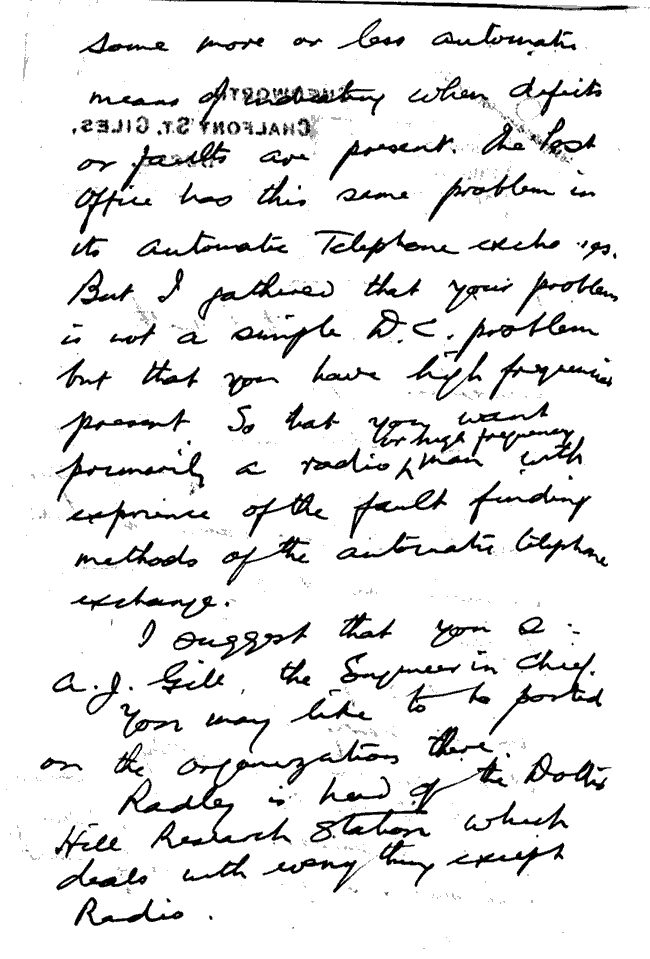 some more or less automatic
means of indicating when defects
CHALFONT ST. GILES,
or faults are present. The Post
Office has this same problem in
its automatic Telephone
But I gathered that your problem
is not a simple D.C. problem
but that you have high frequencies
present. So that you want
or high frequency
primarily a radio ʌ man with
exprience of the fault finding
methods of the automatic telephone
exchange.
I suggest that you
A. J. Gill, the Engineer in Chief.
You may like to be posted
on the organization there.
Radley is head of the Dollis
Hill Research Station which
deals with every thing except
Radio.